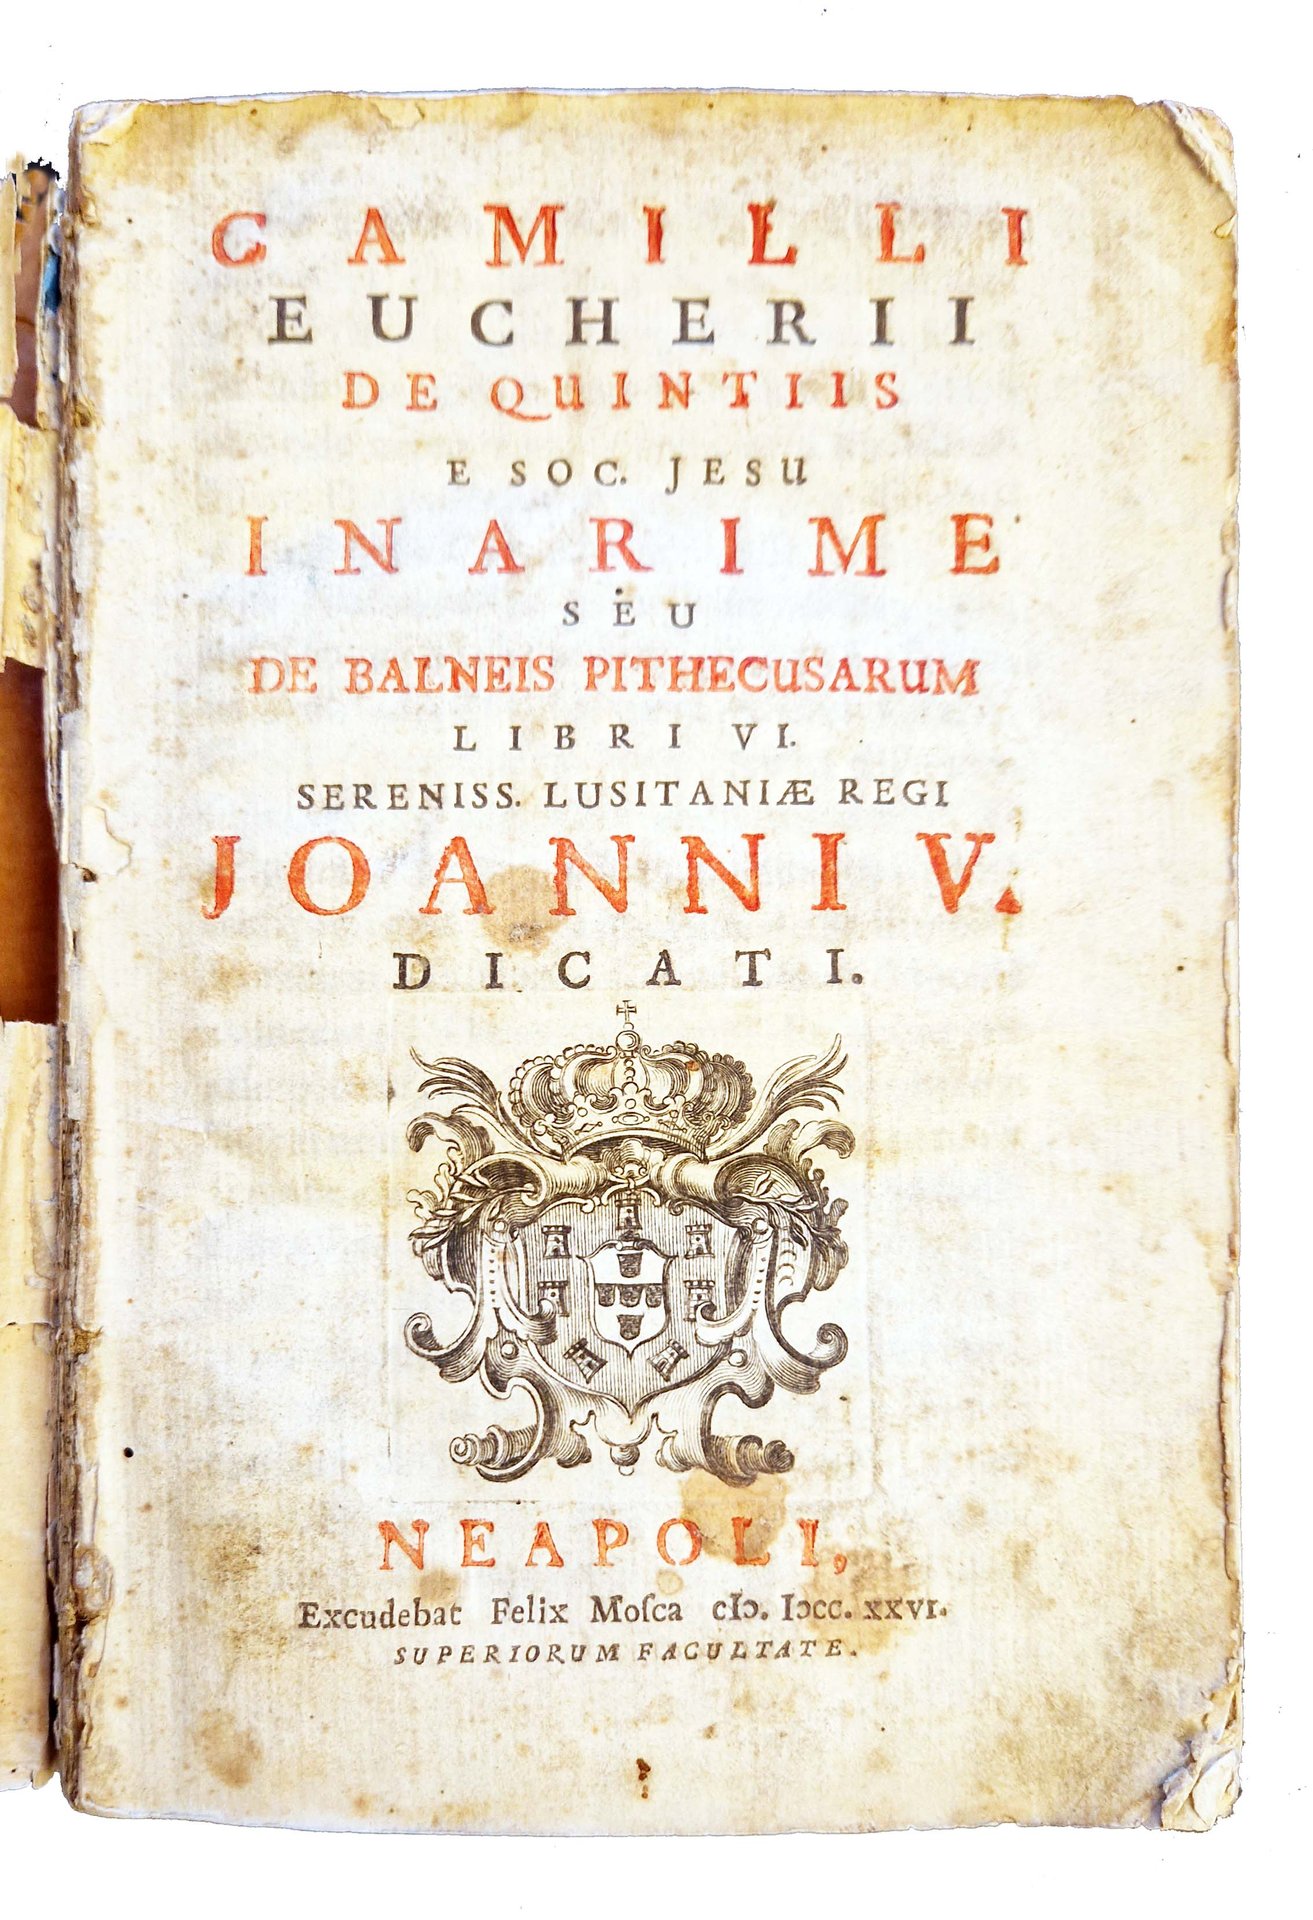 CAMILLI
EUCHERII
DE QUINTIIS
E SOC. JESU
INARIME
SEU
DE BALNEIS PITHECUSARUM
LIBRI VI.
SERENISS. LUSITANIÆ REGI
JOANNI V.
DICATI.
NEAPOLI,
Excudebat Felix Moſca cIↄ. Iↄcc. xxvi.
SUPERIORUM FACULTATE.